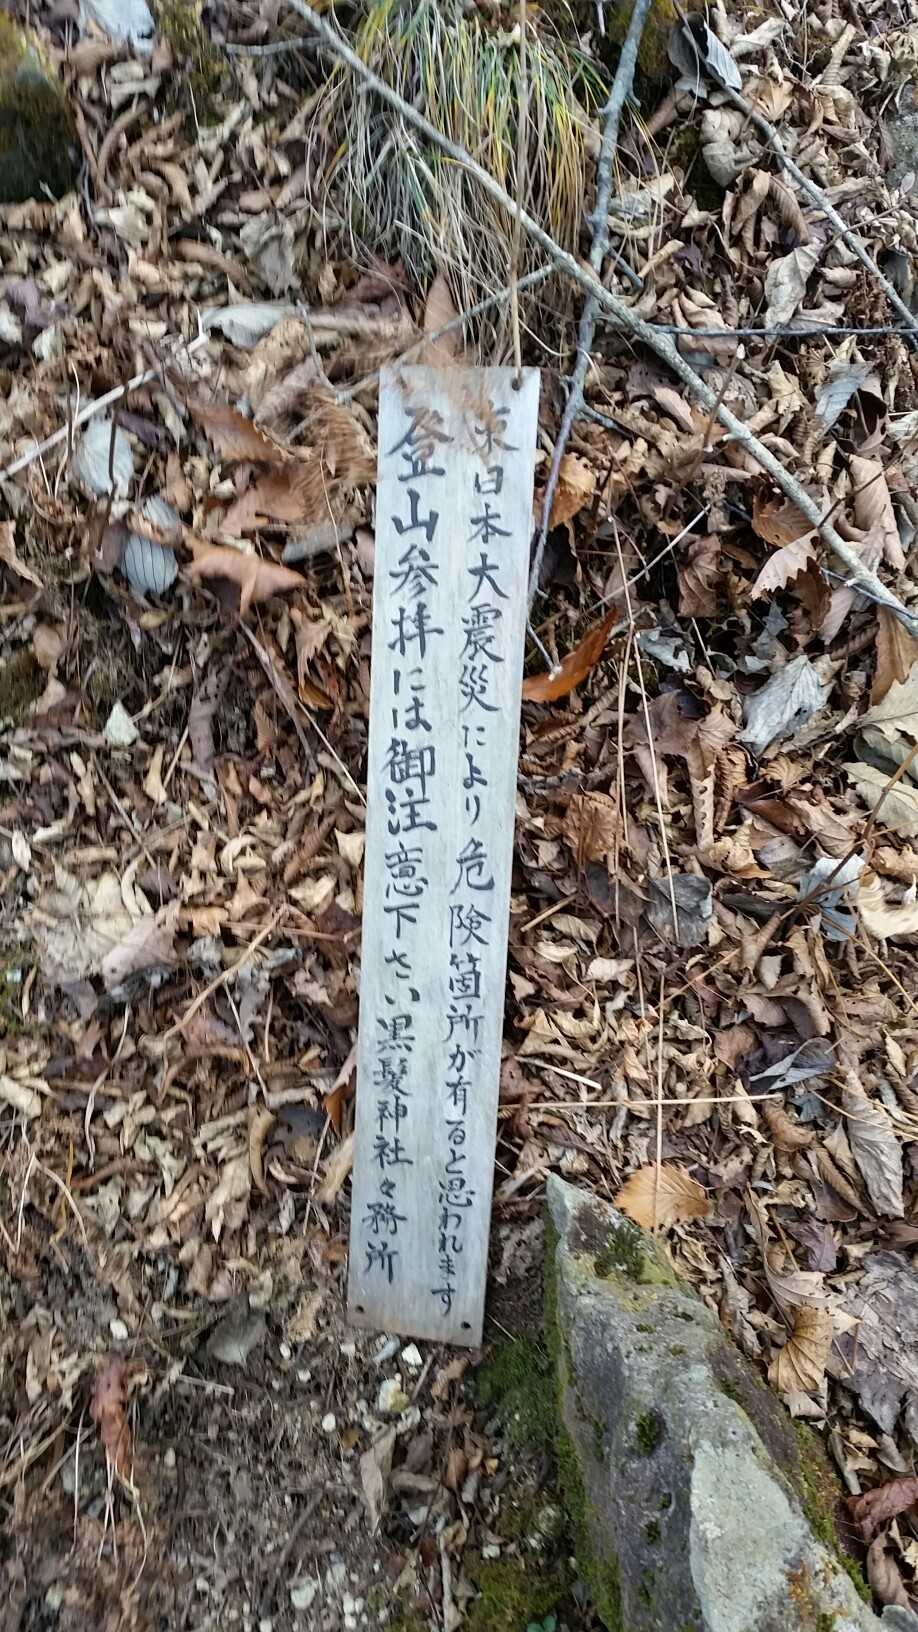 東日本大震災により危険箇所が有ると思われます
登山参拝には御注意下さい黒髪神社々務所